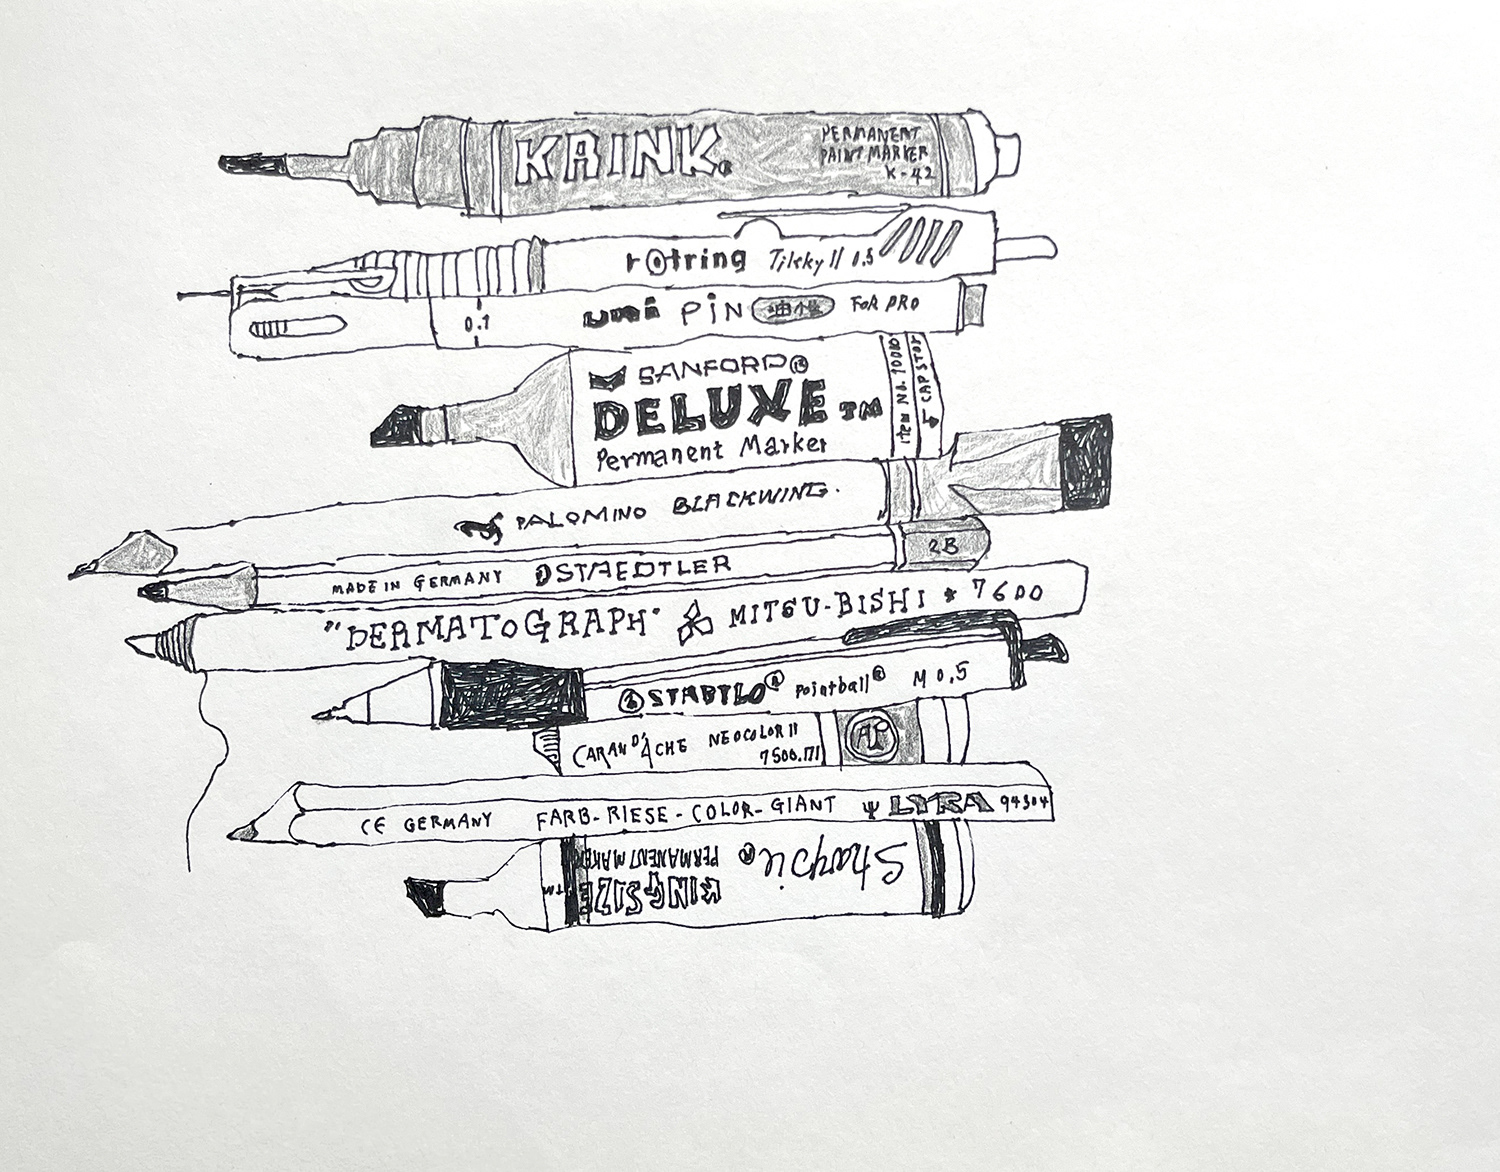 KRINK.
PERMANENT
PAINT MARKER
K-42
rotring Tikky II 0.5
0.1
uni PiN 油性 FOR PRO
SANFORD®
DELUXE TM
Permanent Marker
Item No. 10010
CAP STOP
PALOMINO BLACKWING.
MADE IN GERMANY STAEDTLER 2B
"DERMATOGRAPH" MITSU-BISHI * 7600
STABILO® Pointball® M 0.5
CARAN D'ACHE NEOCOLOR II
7500.171
CE GERMANY FARB-RIESE-COLOR-GIANT LYRA 94304
Sharpie®
KING SIZE TM
PERMANENT MARKER